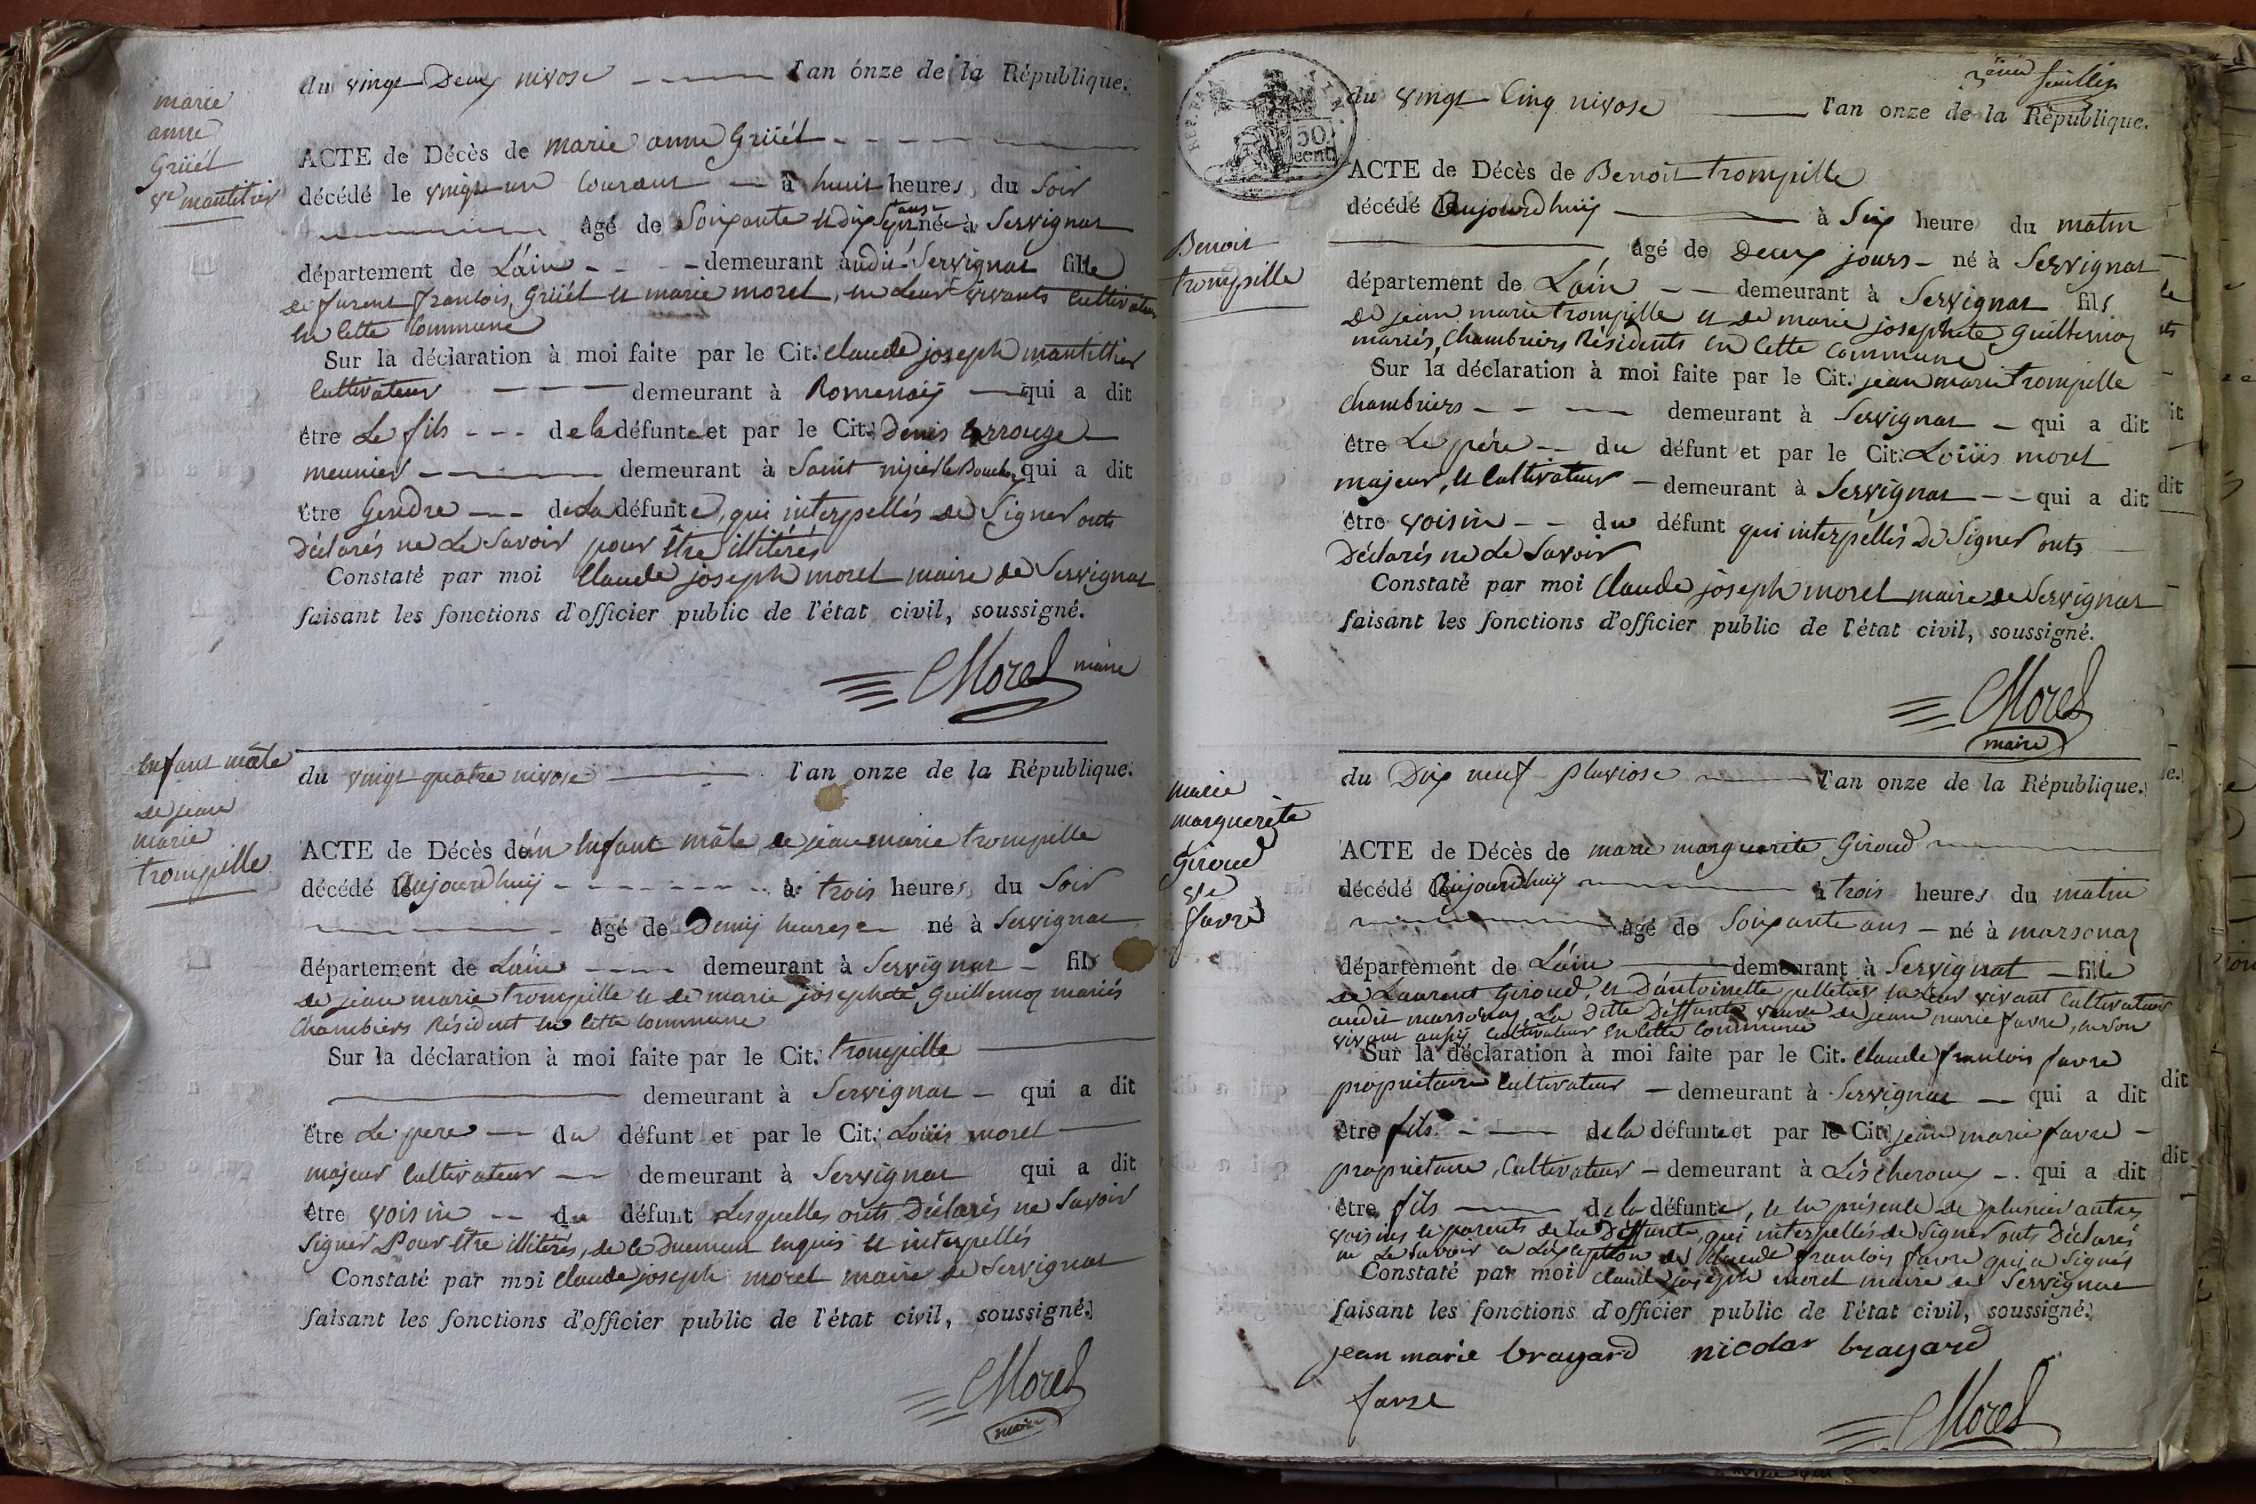 marie
anne
Grüél
ve mantitier
du vingt Deux nivose l'an onze de la République.
ACTE de Décès de marie anne Grüél
décédé le vingt un courant à huit heures du Soir
agé de Soixante et dix Sept ans né à Servignat
département de L'ain demeurant audit Servignat fille
de furent francois Grüél et marie morel, en Leur vivants Cultivateurs
en Cette Commune
Sur la déclaration à moi faite par le Cit. claude joseph mantittier
Cultivateur demeurant à Romenaÿ qui a dit
être Le fils de la défunte et par le Cit. Denis
meunier demeurant à Saint nizier le Bouchoux qui a dit
être Gendre de La défunte, qui interpellés de Signer onts
Déclarés ne Le Savoir pour être illitérés
Constaté par moi Claude joseph morel maire de Servignat
faisant les fonctions d'officier public de l'état civil, soussigné.
CMorel maire
Enfant mâle
de jean
marie
trompille
du vingt quatre nivose l'an onze de la République.
ACTE de Décès d'un Enfant mâle de jean marie trompille
décédé Aujourdhuij à trois heures du Soir
agé de Demij heures né à Servignat
département de L'ain demeurant à Servignat fils
de jean marie trompille et de marie josephete Guillemoz mariés
Chambriers Résident en Cette Commune
Sur la déclaration à moi faite par le Cit. trompille
demeurant à Servignat qui a dit
être Le pere du défunt et par le Cit. Loüis morel
majeur Cultivateur demeurant à Servignat qui a dit
être voisin du défunt Lesquelles onts Déclarés ne Savoir
Signer Pour être illitérés, de ce Duement enquis et interpellés
Constaté par moi Claude joseph morel maire de Servignat
faisant les fonctions d'officier public de l'état civil, soussigné.
CMorel
maire
3eme feuillet
REP. FRA.
50
cent.
Benoit
trompille
du vingt Cinq nivose l'an onze de la République.
ACTE de Décès de Benoit trompille
décédé Aujourdhuij à Six heure du matin
agé de Deux jours né à Servignat
département de L'ain demeurant à Servignat fils
de jean marie trompille et de marie josephete Guillemoz
mariés, Chambriers Résidents en Cette Commune
Sur la déclaration à moi faite par le Cit. jean marie trompille
Chambriers demeurant à Servignat qui a dit
être Le pére du défunt et par le Cit. Loüis morel
majeur, et Cultivateur demeurant à Servignat qui a dit
être voisin du défunt qui interpellés De Signer onts
Déclarés ne Le Savoir
Constaté par moi Claude joseph morel maire de Servignat
faisant les fonctions d'officier public de l'état civil, soussigné.
CMorel
maire
marie
marguerite
Giroud
ve
favre
du Dix neuf pluviose l'an onze de la République.
ACTE de Décès de marie marguerite Giroud
décédé Aujourdhuij à trois heures du matin
agé de Soixante ans né à marsonaz
département de L'ain demeurant à Servignat fille
de Laurent Giroud, et D'antoinette pelletier en Leur vivant Cultivateurs
audit marsonaz, La ditte Deffunte veuve de jean marie favre, en son
vivant aussij Cultivateur En Cette Commune
Sur la déclaration à moi faite par le Cit. Claude francois favre
propriétaire Cultivateur demeurant à Servignat qui a dit
être fils de la défunte et par le Cit. jean marie favre
propriétaire, Cultivateur demeurant à Léscheroux qui a dit
être fils de la défunte, et en présence de plusieur autres
voisins et parents de la Deffunte, qui interpellés de Signer onts Déclarés
ne Le Savoir a L'exception de Claude francois favre qui a Signés
Constaté par moi Claude joseph morel maire de Servignat
faisant les fonctions d'officier public de l'état civil, soussigné.
jean marie brayard nicolas brayard
favre
CMorel